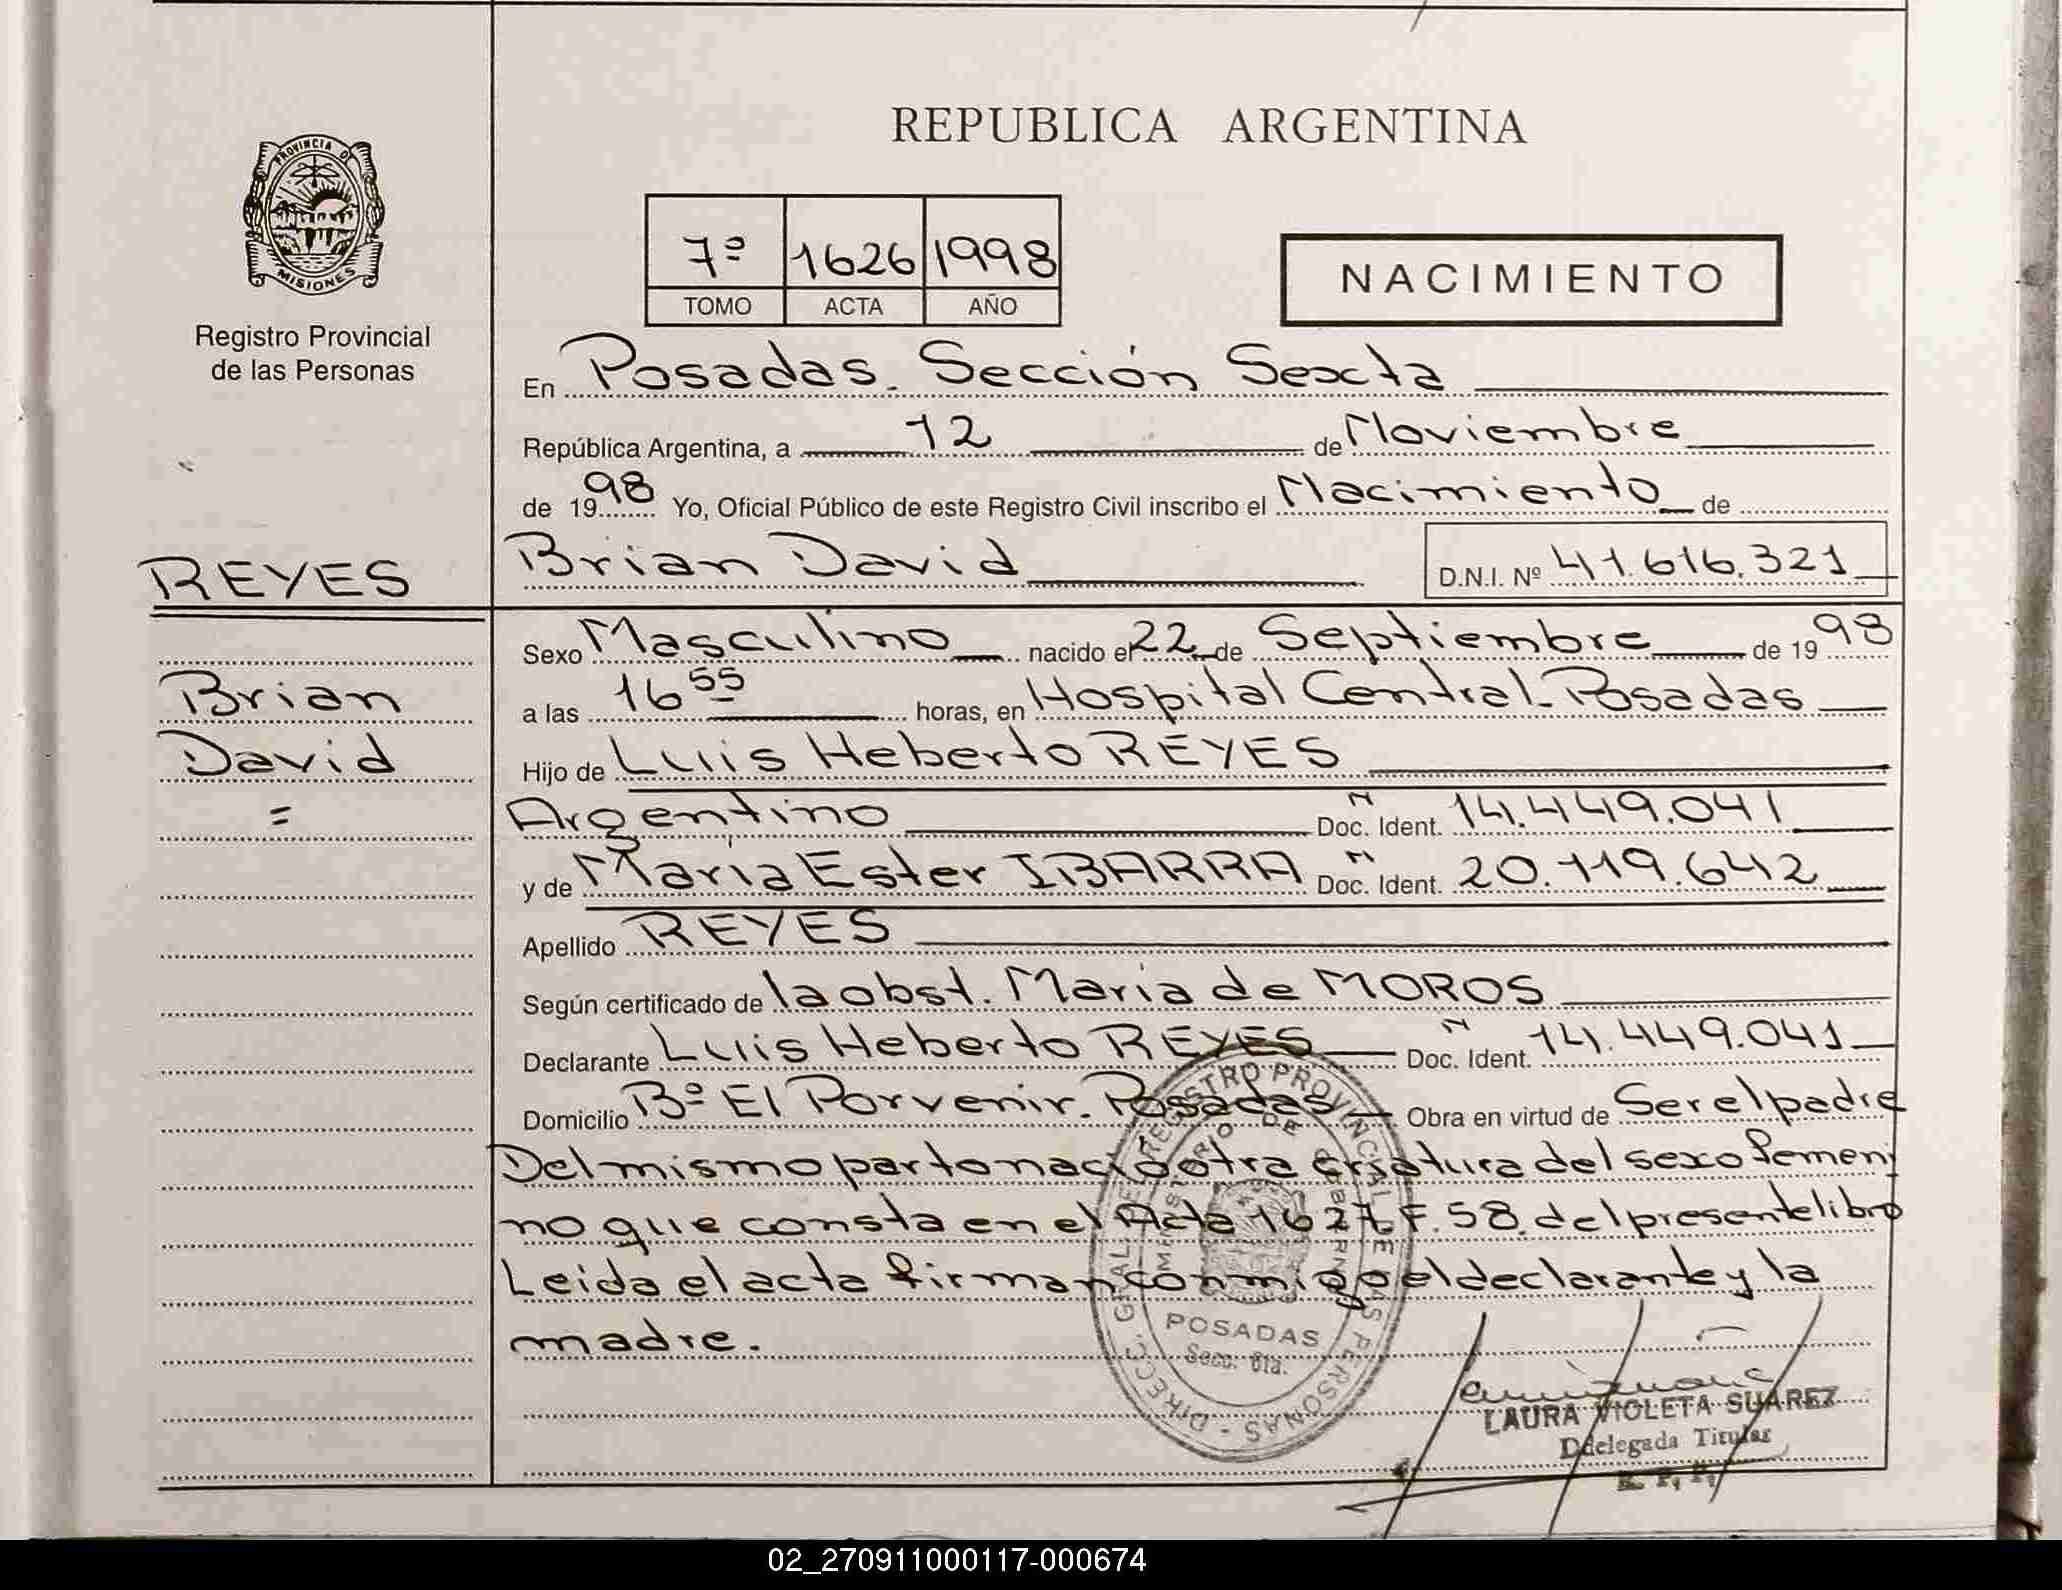 REPUBLICA ARGENTINA
PROVINCIA DE
MISIONES
Registro Provincial
de las Personas
7º 1626 1998
TOMO ACTA AÑO
NACIMIENTO
En Posadas. Sección Sexta
República Argentina, a 12 de Noviembre
de 1998 Yo, Oficial Público de este Registro Civil inscribo el Nacimiento de
REYES
Brian David D.N.I. Nº 41.616.321
Brian
David
=
Sexo Masculino nacido el 22 de Septiembre de 1998
a las 16 55 horas, en Hospital Central - Posadas
Hijo de Luis Heberto REYES
Argentino Doc. Ident. N 14.449.041
y de María Ester IBARRA Doc. Ident. N 20.119.642
Apellido REYES
Según certificado de la obst. María de MOROS
Declarante Luis Heberto REYES Doc. Ident. N 14.449.041
Domicilio Bº El Porvenir. Posadas Obra en virtud de Ser el padre
Del mismo parto nació otra criatura del sexo femeni
no que consta en el Acta 1627 F. 58. del presente libro
Leida el acta firman conmigo el declarante y la
madre.
DIRECC. GRAL. DE REGISTRO PROVINCIAL DE LAS PERSONAS -
MINISTERIO DE GOBIERNO
POSADAS
Secc. 6ta.
LAURA VIOLETA SUAREZ
Ddelegada Titular
R. P. P.
02_270911000117-000674